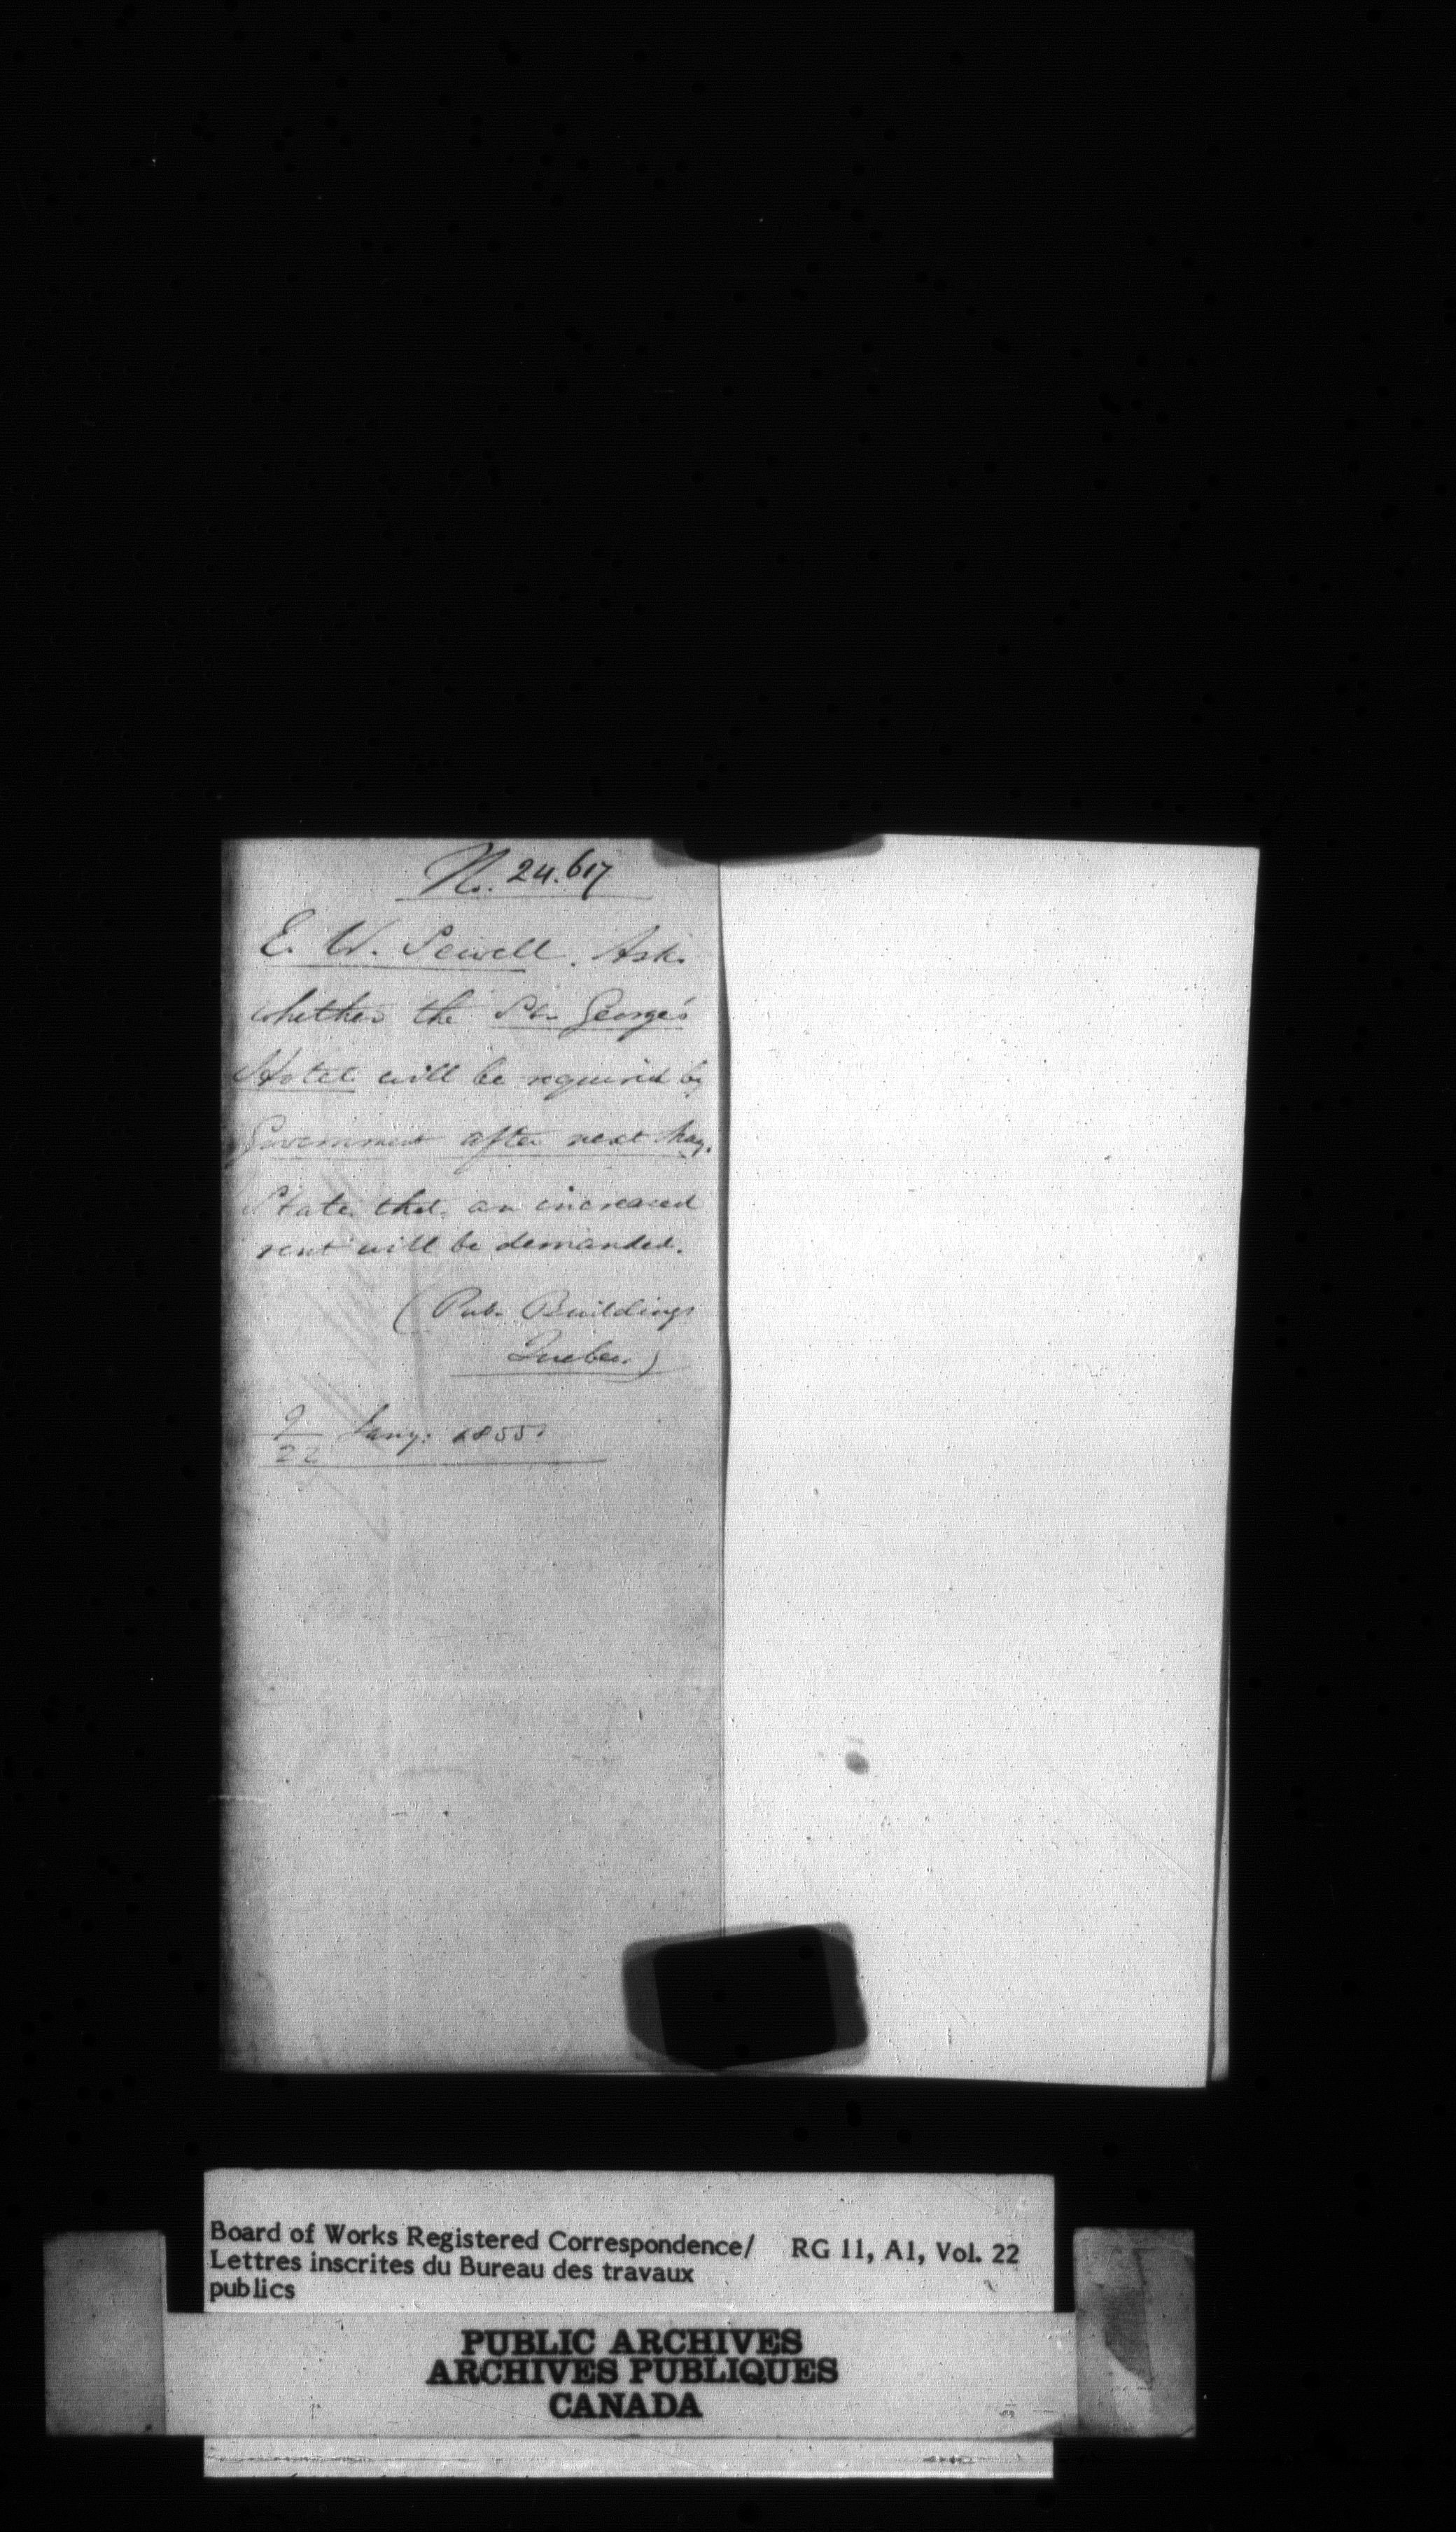 No. 24.617
E. W. Sewell. Asks
whether the St. George's
Hotel will be required by
Government after next May.
States that an increased
rent will be demanded.
(Pub. Buildings
Quebec.)
9/22 Jany: 1855.
Board of Works Registered Correspondence/ RG 11, A1, Vol. 22
Lettres inscrites du Bureau des travaux
publics
PUBLIC ARCHIVES
ARCHIVES PUBLIQUES
CANADA